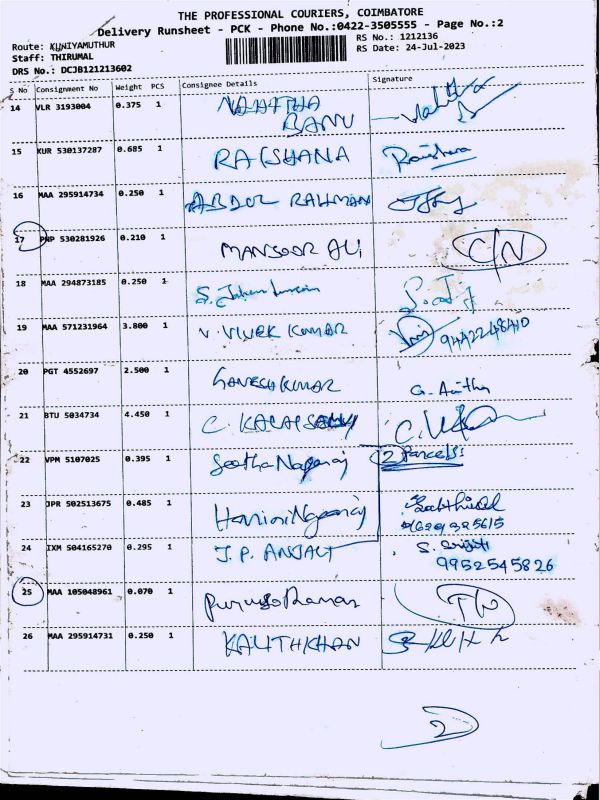 THE PROFESSIONAL COURIERS, COIMBATORE
Delivery Runsheet - PCK - Phone No.:0422-3505555 - Page No.:2
Route: KUNIYAMUTHUR
RS No.: 1212136
Staff: THIRUMAL
RS Date: 24-Jul-2023
DRS No.: DCJB121213602
S No Consignment No Weight PCS Consignee Details Signature
14 VLR 3193004 0.375 1
BANU
15 KUR 530137287 0.685 1 RAFSHANA
16 MAA 295914734 0.250 1 ABDUL RAHMAN
17 PNP 530281926 0.210 1 MANSOOR ALI C/N
18 MAA 294873185 0.250 1 S.
19 MAA 571231964 3.800 1 V. VIVEK KUMAR
20 PGT 4552697 2.500 1 GANESH KUMAR G.
21 BTU 5034734 4.450 1 C. C.
22 VPM 5107025 0.395 1 Seetha Nagaraj 2 Parcels
23 JPR 502513675 0.485 1 Harini Nagaraj
24 IXM 504165270 0.295 1 J.P. ANJALI S.
9952545826
25 MAA 105048961 0.070 1
26 MAA 295914731 0.250 1 KALITHKHAN
2